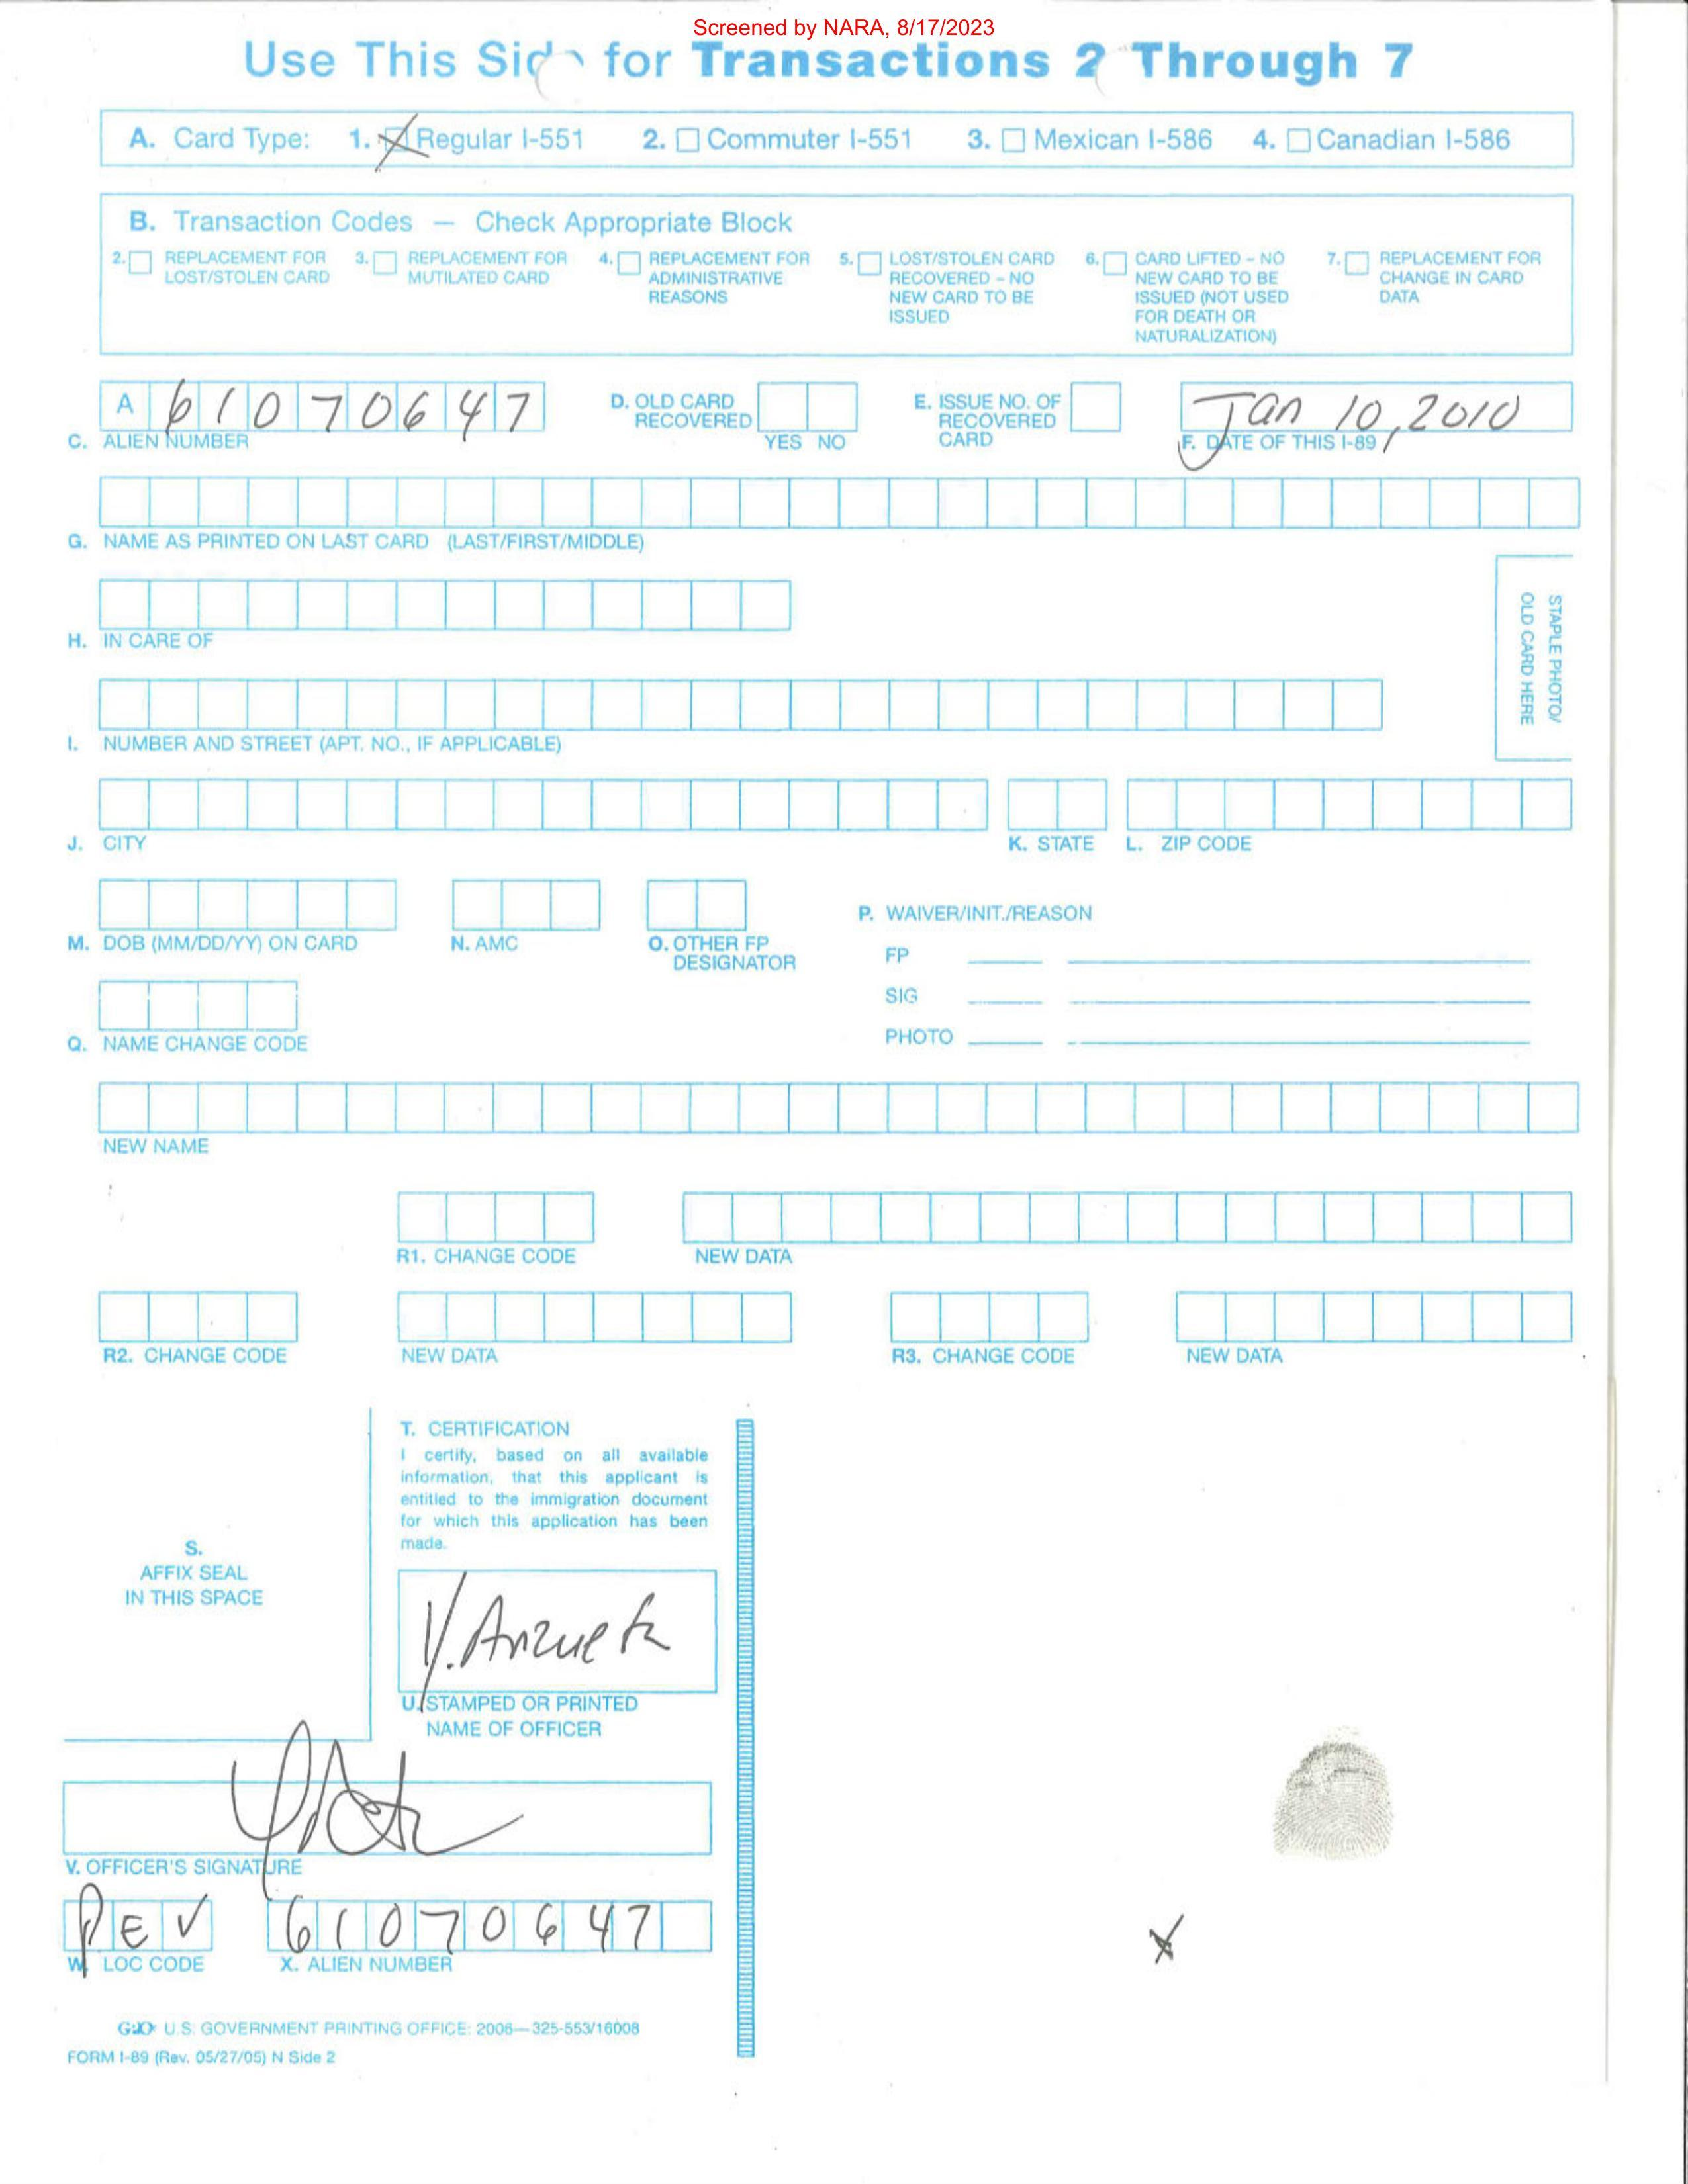 Screened by NARA, 8/17/2023
Use This Side for Transactions 2 Through 7
A. Card Type: 1. Regular I-551 2. Commuter I-551 3. Mexican I-586 4. Canadian I-586
B. Transaction Codes — Check Appropriate Block
2. REPLACEMENT FOR LOST/STOLEN CARD
3. REPLACEMENT FOR MUTILATED CARD
4. REPLACEMENT FOR ADMINISTRATIVE REASONS
5. LOST/STOLEN CARD RECOVERED - NO NEW CARD TO BE ISSUED
6. CARD LIFTED - NO NEW CARD TO BE ISSUED (NOT USED FOR DEATH OR NATURALIZATION)
7. REPLACEMENT FOR CHANGE IN CARD DATA
A 61070647
C. ALIEN NUMBER
D. OLD CARD RECOVERED
YES NO
E. ISSUE NO. OF RECOVERED CARD
Jan 10, 2010
F. DATE OF THIS I-89
G. NAME AS PRINTED ON LAST CARD (LAST/FIRST/MIDDLE)
STAPLE PHOTO/
OLD CARD HERE
H. IN CARE OF
I. NUMBER AND STREET (APT. NO., IF APPLICABLE)
J. CITY K. STATE L. ZIP CODE
M. DOB (MM/DD/YY) ON CARD N. AMC O. OTHER FP DESIGNATOR
P. WAIVER/INIT./REASON
FP
SIG
PHOTO
Q. NAME CHANGE CODE
NEW NAME
R1. CHANGE CODE NEW DATA
R2. CHANGE CODE NEW DATA R3. CHANGE CODE NEW DATA
S.
AFFIX SEAL
IN THIS SPACE
T. CERTIFICATION
I certify, based on all available
information, that this applicant is
entitled to the immigration document
for which this application has been
made.
Y. Anzueta
U. STAMPED OR PRINTED
NAME OF OFFICER
V. OFFICER'S SIGNATURE
PEV 61070647
W. LOC CODE X. ALIEN NUMBER
GPO U.S. GOVERNMENT PRINTING OFFICE: 2006—325-553/16008
FORM I-89 (Rev. 05/27/05) N Side 2